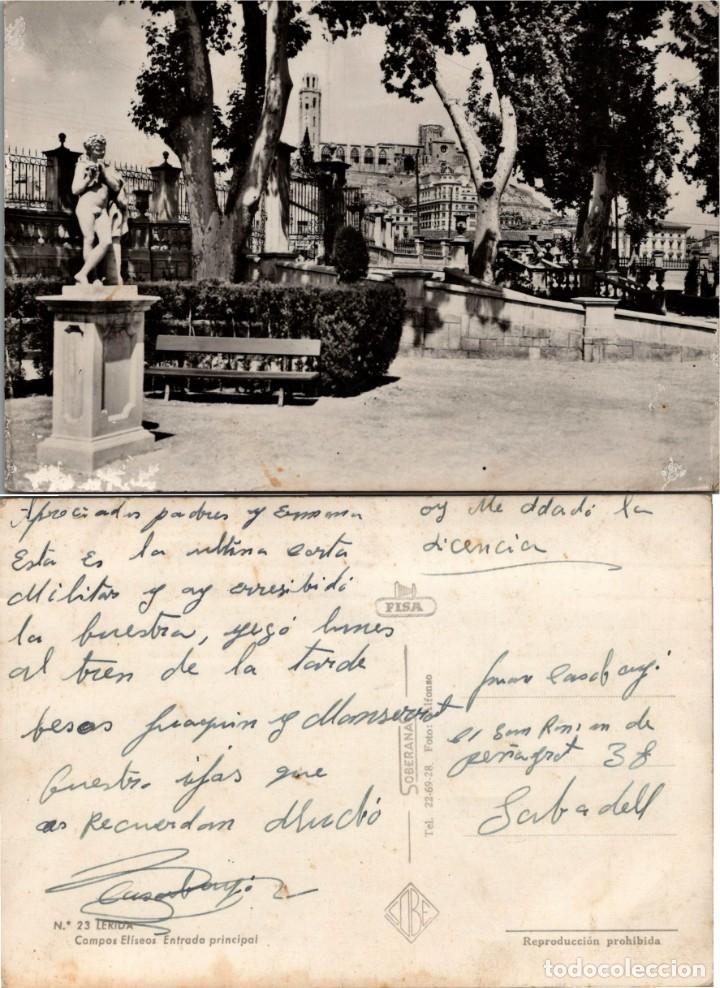 Apreciados padres y ermana
Esta es la ultima carta
Militar y oy erresibido
la buestra, yegó lunes
al tren de la tarde
besos Juaquin y Monserrat
que
os Recuerdan Muchó
oy Me ddadó la
Licencia
FISA
SOBERANA
Tel. 22-69-28. Foto: Alfonso
Juan Casabayi
de
peñagrot 38
Sabadell
N.º 23 LERIDA
Campos Elíseos Entrada principal
Reproducción prohibida
todocoleccion
todocoleccion.net